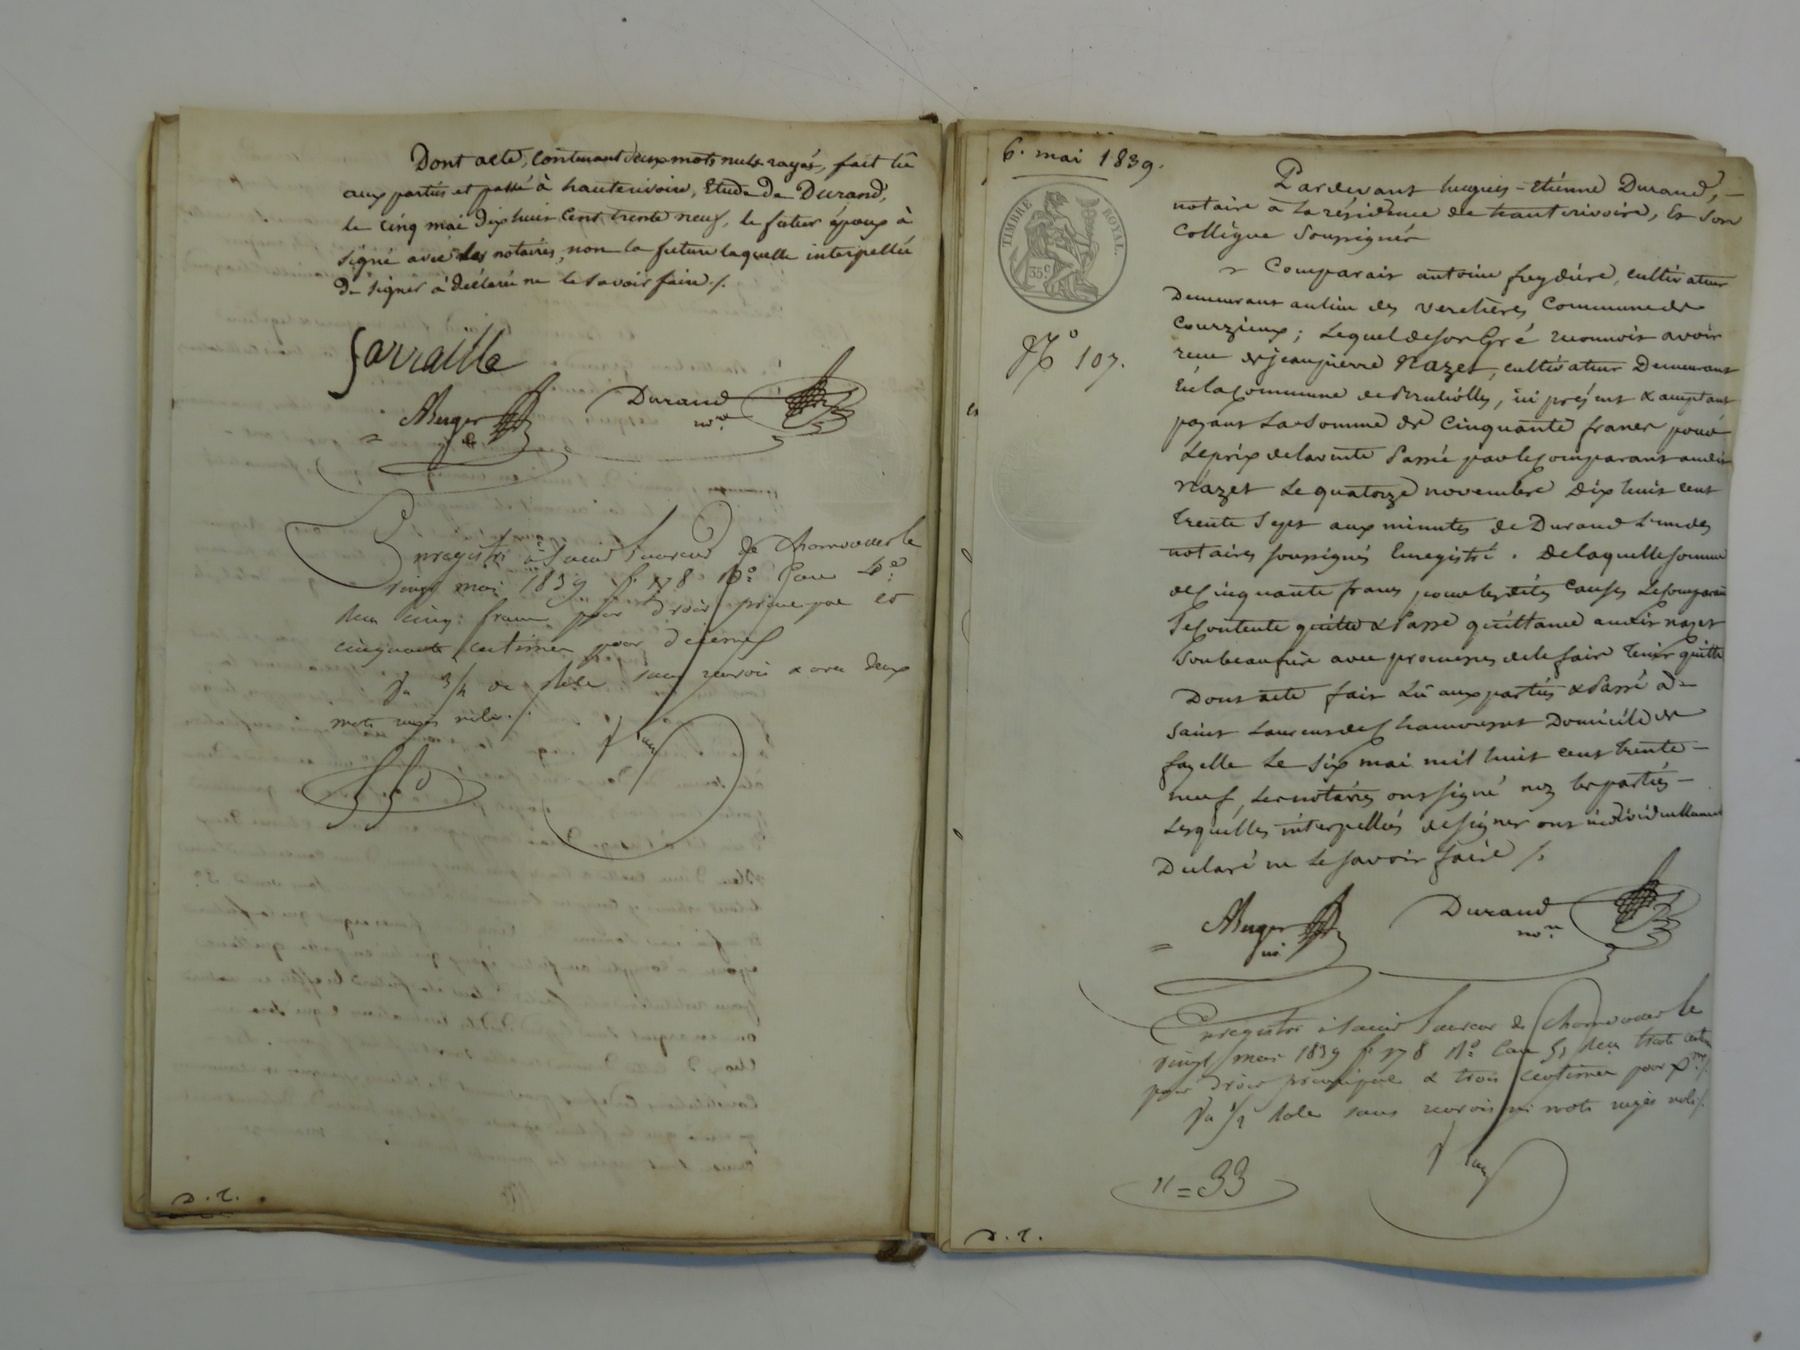 Dont acte, contenant deux mots nuls rayés, fait lu
aux parties et passé à hauterivoire, Etude de Durand,
le cinq mai dix huit cent trente neuf, le futur époux à
signé avec les notaires, non la future laquelle interpellée
de signer à déclaré ne le savoir faire ./.
Sarraille
ABerger
Durand
nre
Enregistré à Saint Laurent de Chamousset le
vingt mai 1839 fo 178 Ro Case 4e
Reçu cinq francs pour droit principal et
cinquante centimes pour décime
Vu 3/4 de Rôle sans renvoi & avec deux
mots rayés nuls ./.
D. r.
6. mai 1839.
TIMBRE ROYAL.
35c
No 107.
Pardevant hugues-Etienne Durand,
notaire à la résidence de hauterivoire, Et son
Collègue Soussignés
Comparait antoine freydière, cultivateur
Demeurant au lieu des verchères Commune de
Courzieux; Lequel de son Gré reconnoit avoir
recu de jean pierre Nazet, cultivateur Demeurant
En la Commune de Brullioles, ici présent & acceptant
payant La Somme de Cinquante francs pour
Le prix de la vente Passée par le Comparant audit
Nazet Le quatorze novembre Dix huit cent
trente Sept aux minutes de Durand L'un des
notaires soussignés Enregistré. De laquelle somme
de Cinquante francs pour les dites Causes Le Comparant
Se Contente quitte & Passe quittance audit nazet
Son beau frère avec promesses de le faire tenir quitte
Dont acte fait Lu aux parties & Passé à
Saint Laurent de Chamousset Domicile de
fayelle Le Six mai mil huit cent trente-
neuf, Les notaires ont signé non les parties
Lesquelles interpellées de signer ont individuellement
Déclaré ne Le savoir faire ./.
ABerger
Durand
nre
Enregistré à Saint Laurent de Chamousset le
vingt mai 1839 fo 178 Ro Case Reçu trente centimes
pour droit principal & trois centimes pour
Vu 1/2 Rôle sans renvoi ni mots rayés nuls ./.
" = 33
D. r.